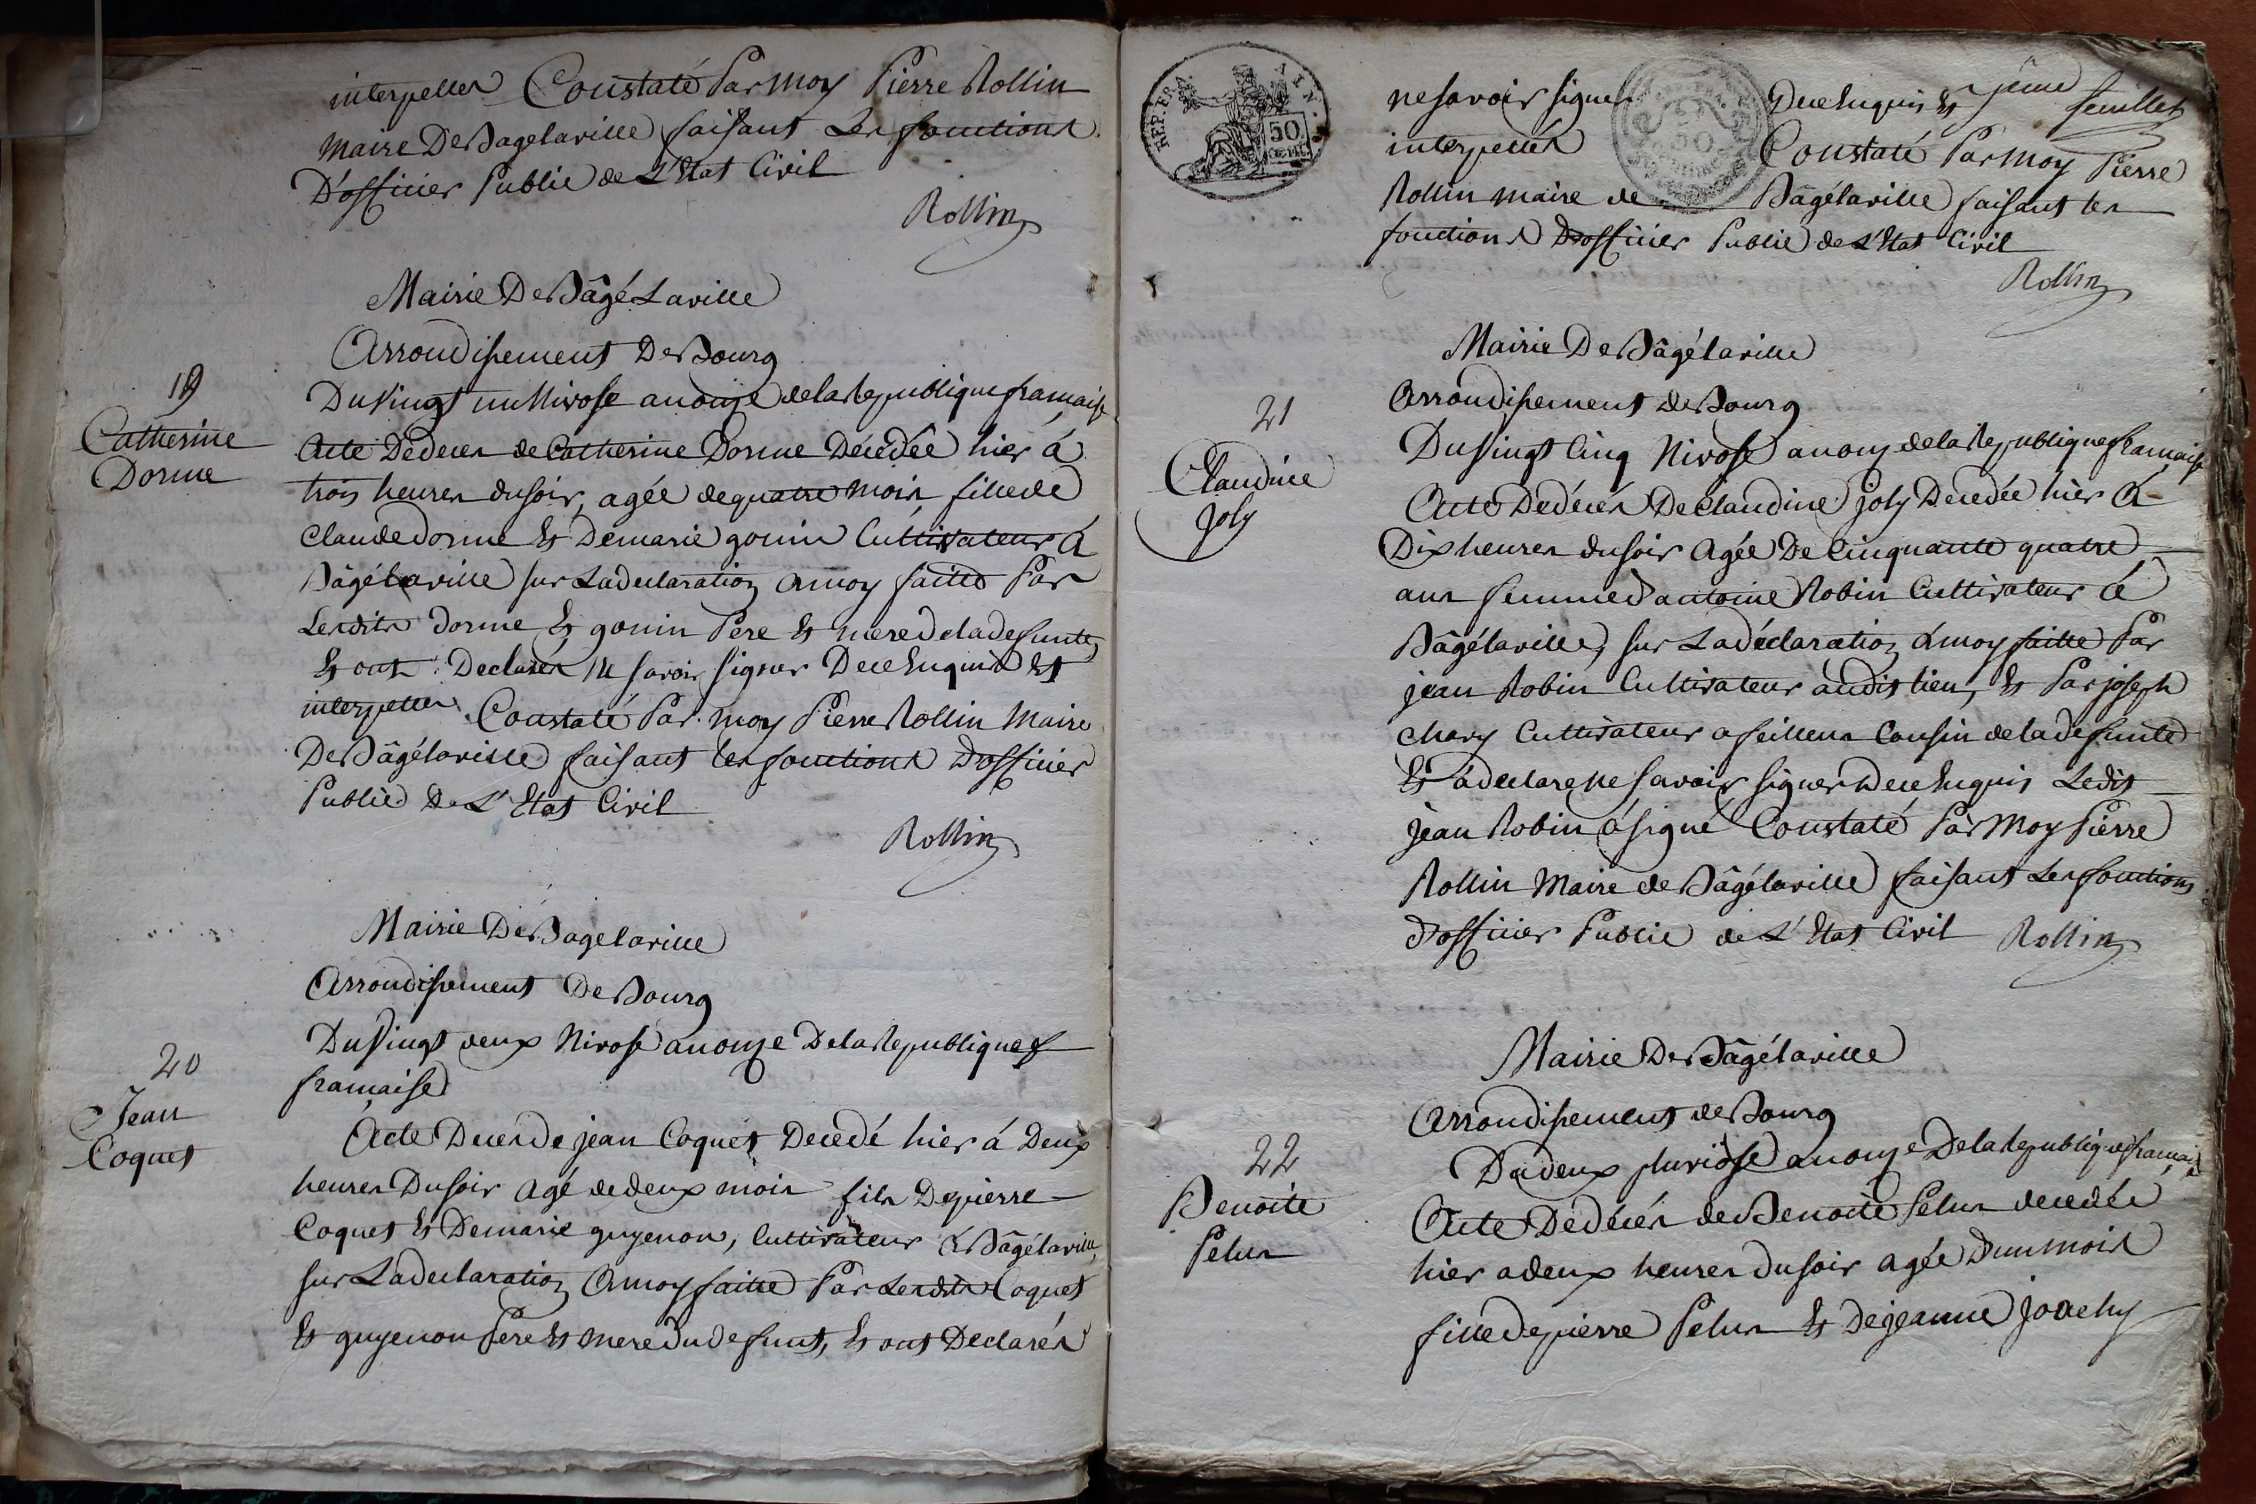 interpellés Constaté Par moy Pierre Rollin
Maire De Bagélaville faisant Les fonctions
D'officier Public de L'Etat Civil
Rollin
Mairie De Bâgé Laville
Arrondissement De Bourg
19
Catherine
Dorme
Du Vingt un Nivose an onze de la Republique francaise
Acte De deces de Catherine Dorme Décedée hier á
trois heures du soir, agée de quatre mois fille de
Claude dorme Et De marie gonin Cultivateur á
Bâgélaville sur La declaration á moy faitte Par
Lesdits Dorme Et gonin Pere Et mere de la defunte,
Et ont Declarés Ne savoir signer De ce Enquis Et
interpellés. Constaté Par moy Pierre Rollin Maire
De Bâgélaville faisant les fonctions D'officier
Public De L'Etat Civil
Rollin
Mairie De Bagelaville
Arrondissement De Bourg
20
Jean
Coquet
Du Vingt deux Nivose an onze De la Republique
francaise
Acte De ces de jean Coquet Decedé hier á Deux
heures Du soir agé de deux mois fils De pierre
Coquet Et De marie guyenon, Cultivateur á Bâgélaville,
sur La declaration á moy faitte Par Lesdits Coquet
Et guyenon Pere Et mere du defunt, Et ont Declarés
REP. FRA. AIN. 50 CENT.
ne savoir signer De ce Enquis Et
feuillet
interpellés Constaté Par moy Pierre
Rollin maire de Bâgélaville faisant les
fonctions D'officier Public de L'Etat Civil
Rollin
Mairie De Bâgélaville
Arrondissement de Bourg
21
Claudine
Joly
Du Vingt Cinq Nivose an onze de la Republique francaise
Acte De décés De Claudine joly Decedée hier á
Dix heures du soir Agée De Cinquante quatre
ans femme d'antoine Robin Cultivateur á
Bâgélaville, sur La déclaration á moy faitte Par
jean Robin Cultivateur audit lieu, Et Par joseph
Chary Cultivateur a feillens Cousin de la defunte
Et á declaré ne savoir signer De ce Enquis Ledit
jean Robin á signé Constaté Par Moy Pierre
Rollin Maire de Bâgélaville faisant Les fonctions
d'officier Public de L'Etat Civil Rollin
Mairie De Bâgélaville
Arrondissement de Bourg
22
Benoite
Pelus
Du deux pluviôse an onze De la Republique francaise
Acte De décés de Benoite Pelus decedée
hier a deux heures du soir agée D'un mois
fille de pierre Pelus Et De jeanne